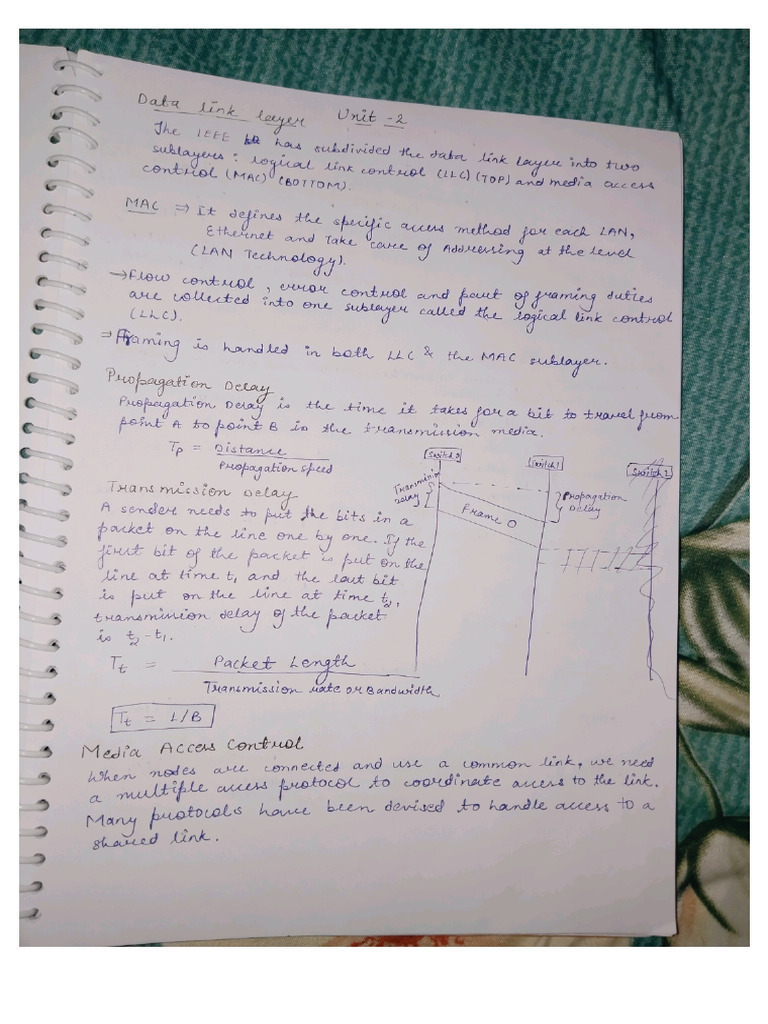 Data link layer Unit -2
The IEEE has subdivided the data link layer into two
sublayers: logical link control (LLC) (TOP) and media access
control (MAC) (BOTTOM).
MAC ⇒ It defines the specific access method for each LAN,
Ethernet and Take care of Addressing at the level
(LAN Technology).
→ Flow control, error control and part of framing duties
are collected into one sublayer called the logical link control
(LLC).
⇒ Framing is handled in both LLC & the MAC sublayer.
Propagation Delay
Propagation Delay is the time it takes for a bit to travel from
point A to point B in the transmission media.
Tp = Distance
Propagation speed
Switch 0
Switch 1
Switch 2
Transmission
Delay
Frame 0
Propagation
Delay
Transmission Delay
A sender needs to put the bits in a
packet on the line one by one. If the
first bit of the packet is put on the
line at time t1 and the last bit
is put on the line at time t2,
transmission delay of the packet
is t2 - t1.
Tt = Packet Length
Transmission rate or Bandwidth
Tt = L/B
Media Access Control
When nodes are connected and use a common link, we need
a multiple access protocol to coordinate access to the link.
Many protocols have been devised to handle access to a
shared link.